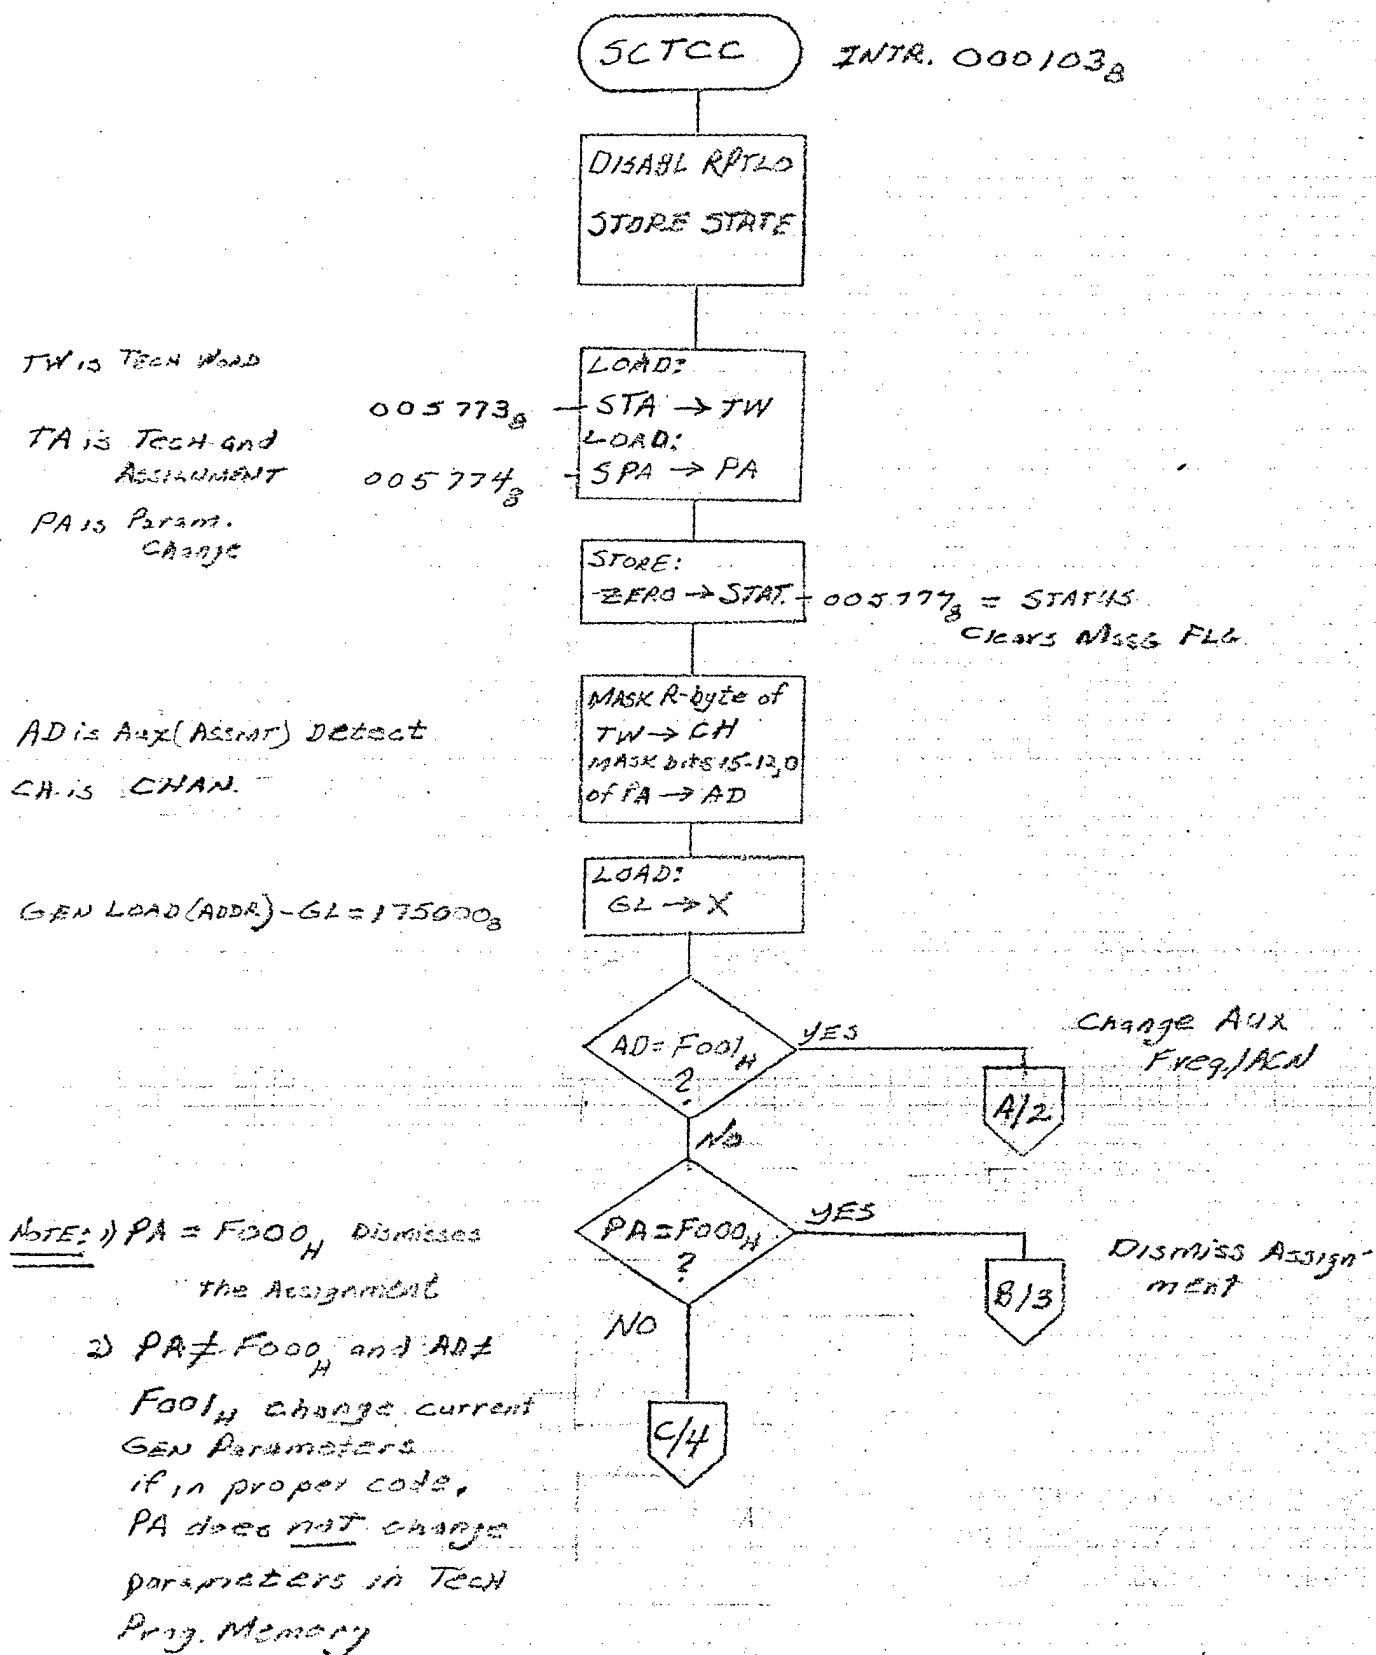 SCTCC INTR. 000103₈
DISABL RPTLO
STORE STATE
TW is TECH WORD
TA is TECH and
ASSIGNMENT
PA is Param.
Change
LOAD:
005773₈ - STA → TW
LOAD:
005774₈ - SPA → PA
STORE:
ZERO → STAT. - 005777₈ = STATUS
Clears MssG FLG
MASK R-byte of
TW → CH
MASK bits 15-12,0
of PA → AD
AD is Aux (Assmt) Detect
CH is CHAN.
LOAD:
GL → X
GEN LOAD (ADDR) - GL = 175000₈
AD = F001H
?
YES
Change AUX
Freq./ACN
A/2
No
PA = F000H
?
YES
Dismiss Assign-
ment
B/3
NO
C/4
NOTE: 1) PA = F000H Dismisses
the Assignment
2) PA ≠ F000H and AD ≠
F001H change current
GEN Parameters
if in proper code.
PA does not change
parameters in TECH
Prog. Memory